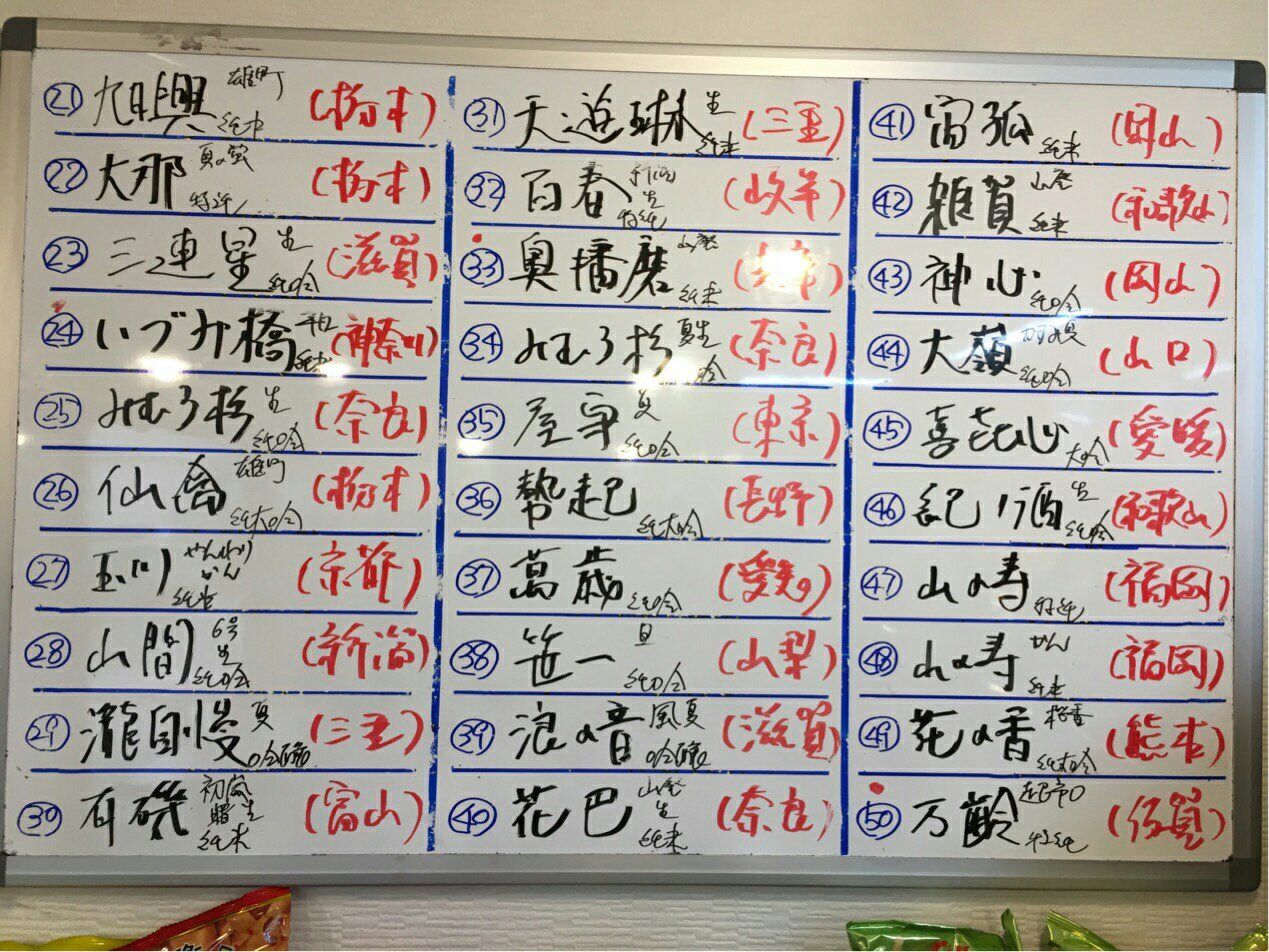 ㉑ 旭興 雄町 純米 (栃木)
㉒ 大那 夏の蛍 特純 (栃木)
㉓ 三連星 生 純吟 (滋賀)
㉔ いづみ橋 純米 (神奈川)
㉕ みむろ杉 生 純吟 (奈良)
㉖ 仙禽 雄町 純大吟 (栃木)
㉗ 玉川 やんわり かん 純米 (京都)
㉘ 山間 6号 生 純吟 (新潟)
㉙ 瀧自慢 夏 吟醸 (三重)
㉚ 有磯 初嵐 曙 生 純米 (富山)
㉛ 天遊琳 生 純米 (三重)
㉜ 百春 生 特純 (岐阜)
㉝ 奥播磨 山廃 純米 (兵庫)
㉞ みむろ杉 夏生 純吟 (奈良)
㉟ 屋守 夏 純吟 (東京)
㊱ 勢起 純大吟 (長野)
㊲ 萬歳 純吟 (愛知)
㊳ 笹一 旦 純吟 (山梨)
㊴ 浪の音 風夏 吟醸 (滋賀)
㊵ 花巴 山廃 生 純米 (奈良)
㊶ 宙狐 純米 (岡山)
㊷ 雑賀 山廃 純米 (和歌山)
㊸ 神心 純吟 (岡山)
㊹ 大嶺 純吟 (山口)
㊺ 喜花心 大吟 (愛媛)
㊻ 紀ノ酒 生 純吟 (和歌山)
㊼ 山の寿 特純 (福岡)
㊽ 山の寿 かん 純米 (福岡)
㊾ 花の香 桜香 純大吟 (熊本)
㊿ 万齢 特純 (佐賀)